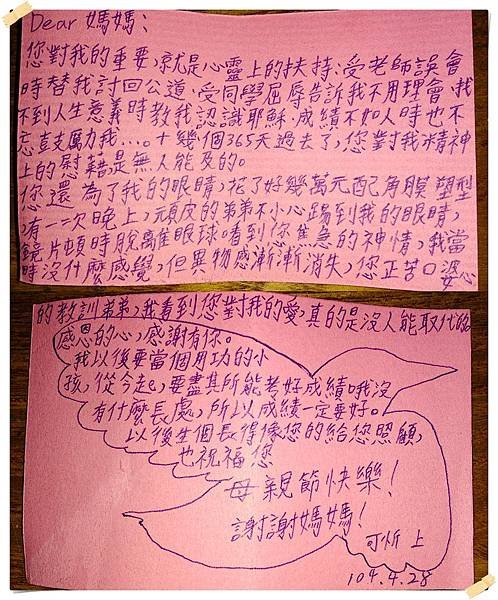 Dear 媽媽：
您對我的重要，就是心靈上的扶持、受老師誤會
時替我討回公道、受同學屈辱告訴我不用理會、找
不到人生意義時教我認識耶穌、成績不如人時也不
忘鼓勵我…。十幾個365天過去了，您對我精神
上的慰藉是無人能及的。
您還為了我的眼睛，花了好幾萬元配角膜塑型
，有一次晚上，頑皮的弟弟不小心踢到我的眼睛，
鏡片頓時脫離眼球。看到您焦急的神情，我當
時沒什麼感覺，但異物感漸漸消失，您正苦口婆心
的教訓弟弟，我看到您對我的愛，真的是沒人能取代的。
感恩的心，感謝有你。
我以後要當個用功的小
孩，從今起，要盡其所能考好成績哦，沒
有什麼長處，所以成績一定要好。
以後生個長得像您的給您照顧，
也祝福您
母親節快樂！
謝謝媽媽！
可忻 上
104.4.28